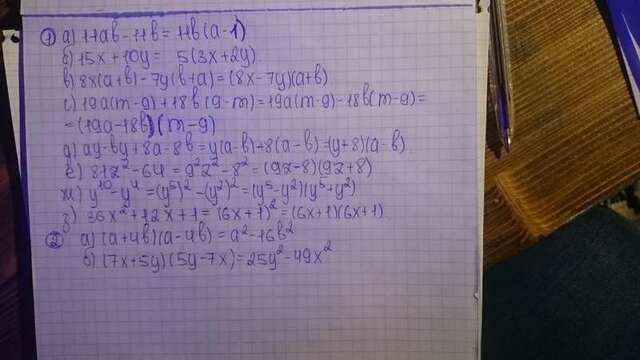 ① а) 11ab - 11b = 11b(a-1)
б) 15x + 10y = 5(3x + 2y)
в) 8x(a+b) - 7y(b+a) = (8x - 7y)(a+b)
г) 19a(m-g) + 18b(g-m) = 19a(m-g) - 18b(m-g) =
= (19a - 18b)(m-g)
д) ay - by + 8a - 8b = y(a-b) + 8(a-b) = (y+8)(a-b)
е) 81z² - 64 = 9z² - 8² = (9z-8)(9z+8)
ж) y¹⁰ - y⁴ = (y⁵)² - (y²)² = (y⁵ - y²)(y⁵ + y²)
з) 36x² + 12x + 1 = (6x+1)² = (6x+1)(6x+1)
② а) (a+4b)(a-4b) = a² - 16b²
б) (7x + 5y)(5y - 7x) = 25y² - 49x²